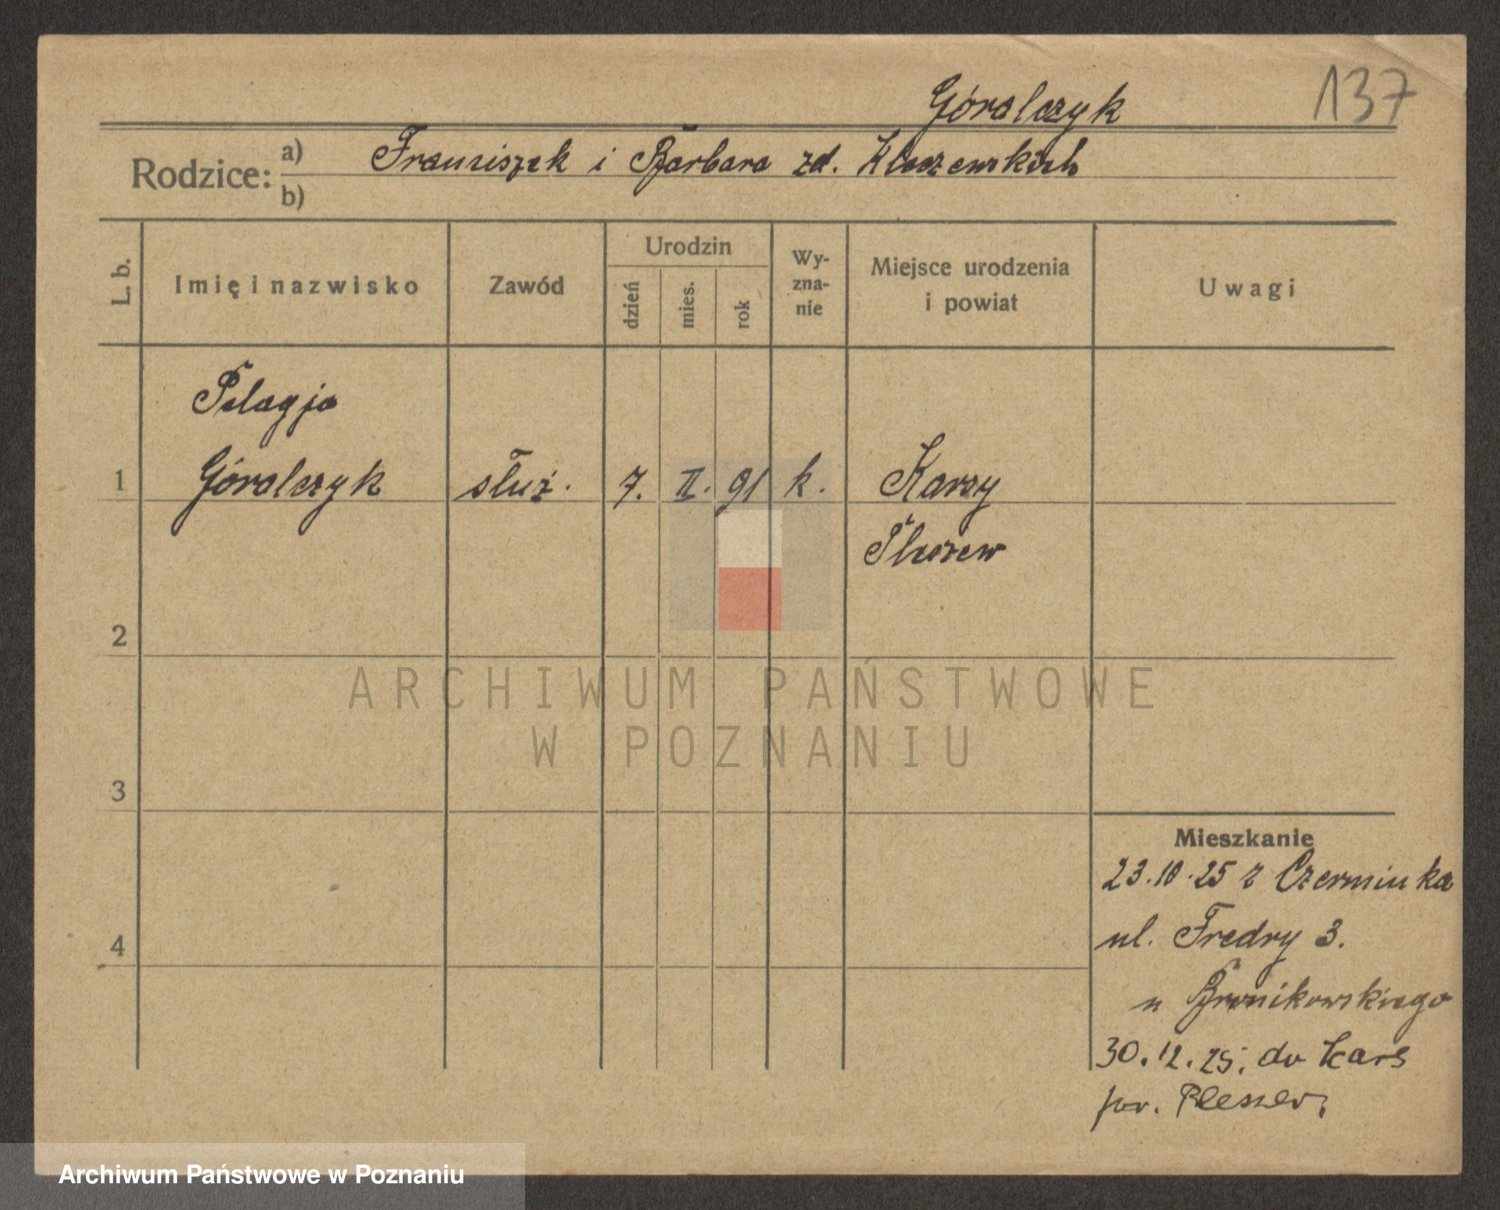 137
Góralczyk
Rodzice: a) Franciszek i Barbara zd.
b)
L. b.
Imię i nazwisko
Zawód
Urodzin
dzień
mies.
rok
Wy-
zna-
nie
Miejsce urodzenia
i powiat
Uwagi
Pelagja
1 Góralczyk służ. 7. II. 91 k. Karsy
Pleszew
2
3
4
Mieszkanie
23.10.25 z Czerminka
ul. Fredry 3.
u Bronikowskiego
30.12.25; do Kars
pow. Pleszew;
ARCHIWUM PAŃSTWOWE
W POZNANIU
Archiwum Państwowe w Poznaniu